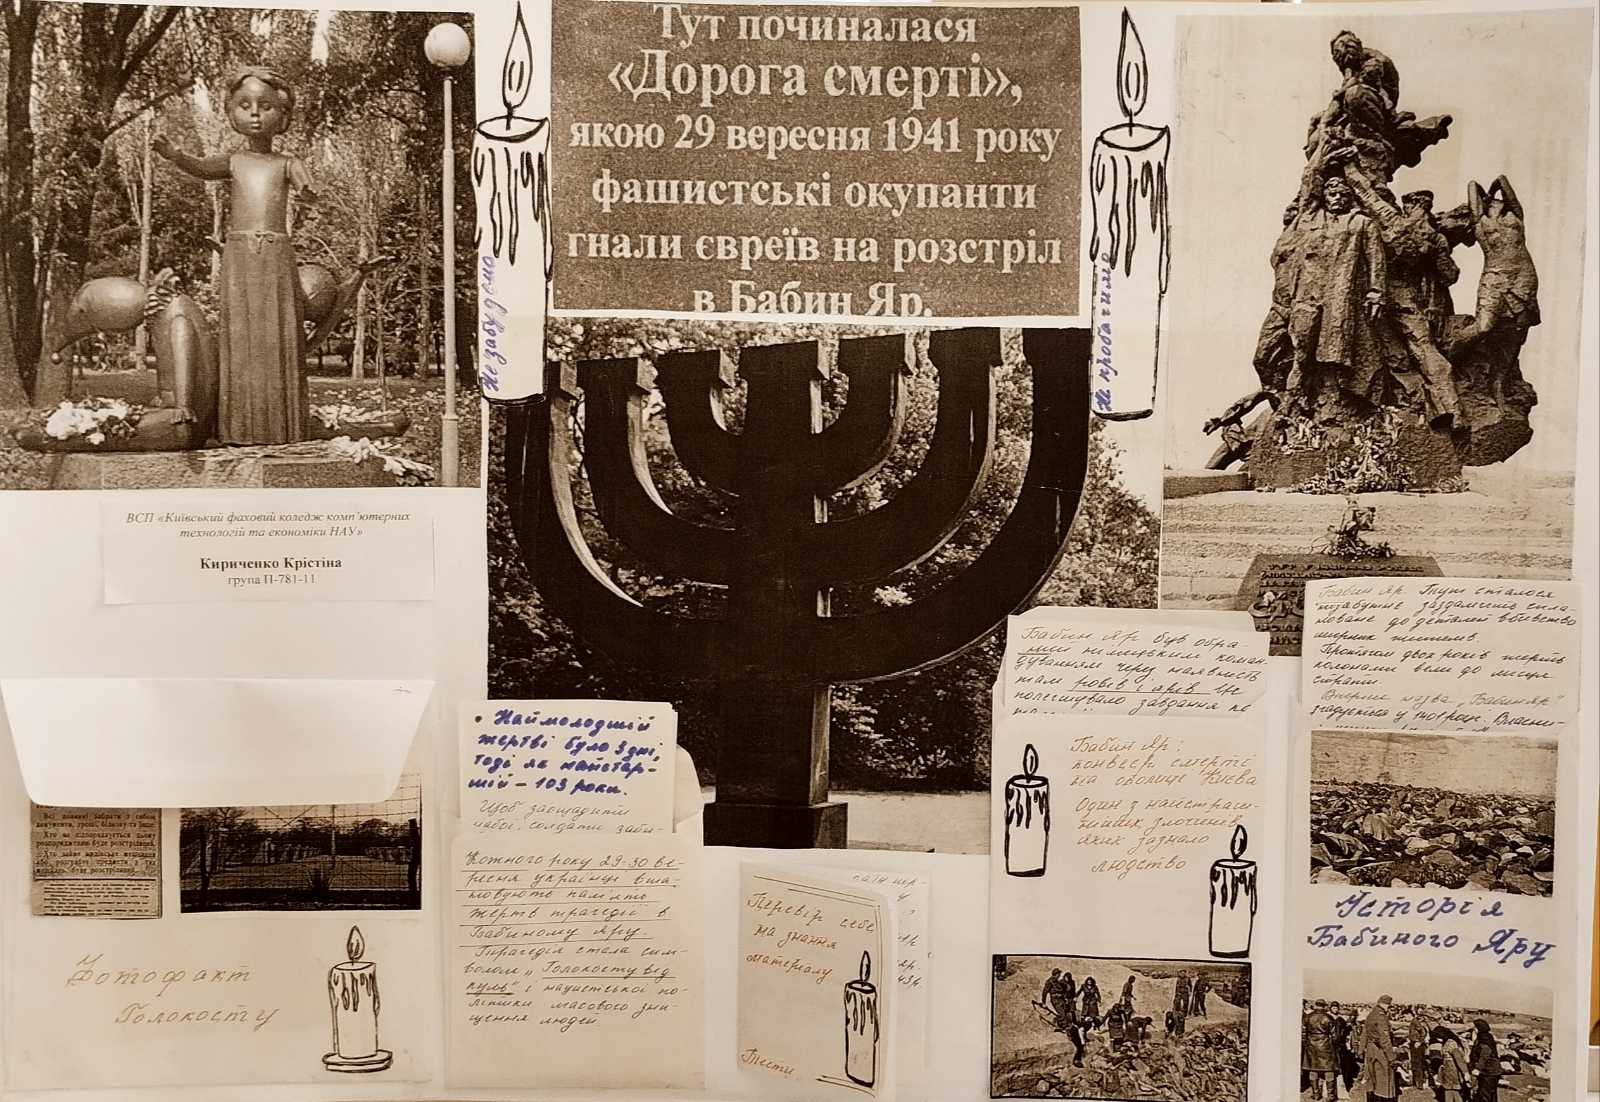 Тут починалася
«Дорога смерті»,
якою 29 вересня 1941 року
фашистські окупанти
гнали євреїв на розстріл
в Бабин Яр.
Не забудемо
Не пробачимо
ВСП «Київський фаховий коледж комп'ютерних
технологій та економіки НАУ»
Кириченко Крістіна
група П-781-11
Всі повинні забрати з собою
документи, гроші, білизну та інше.
Хто не підпорядкується цьому
розпорядженню буде розстріляний.
Хто займе жидівське мешкання
або розграбує предмети з тих
буде розстріляний.
Фотофакт
Голокосту
• Наймолодшій
жертві було 3 дні,
тоді як найстар-
шій - 103 роки.
Щоб заощадити
набої, солдати заби-
Кожного року 29-30 ве-
ресня українці вша-
новують пам'ять
жертв трагедії в
Бабиному Яру.
Трагедія стала сим-
волом „Голокосту від
куль" і нацистської по-
літики масового зни-
щення людей
Перевір себе
на знання
матеріалу
Тести
Бабин Яр був обра-
ний німецьким коман-
дуванням через наявність
там ровів і ярів. Це
полегшувало завдання по
Бабин Яр:
конвеєр смерті
на околиці Києва
Один з найстраш-
ніших злочинів,
яких зазнало
людство
Бабин Яр. Тут сталося
незабутнє заздалегідь спла-
новане до деталей вбивство
мирних жителів.
Протягом двох років жертв
колонами вели до місця
страти.
Вперше назва „Бабин Яр"
згадується у 1401 році. Власни-
Історія
Бабиного Яру